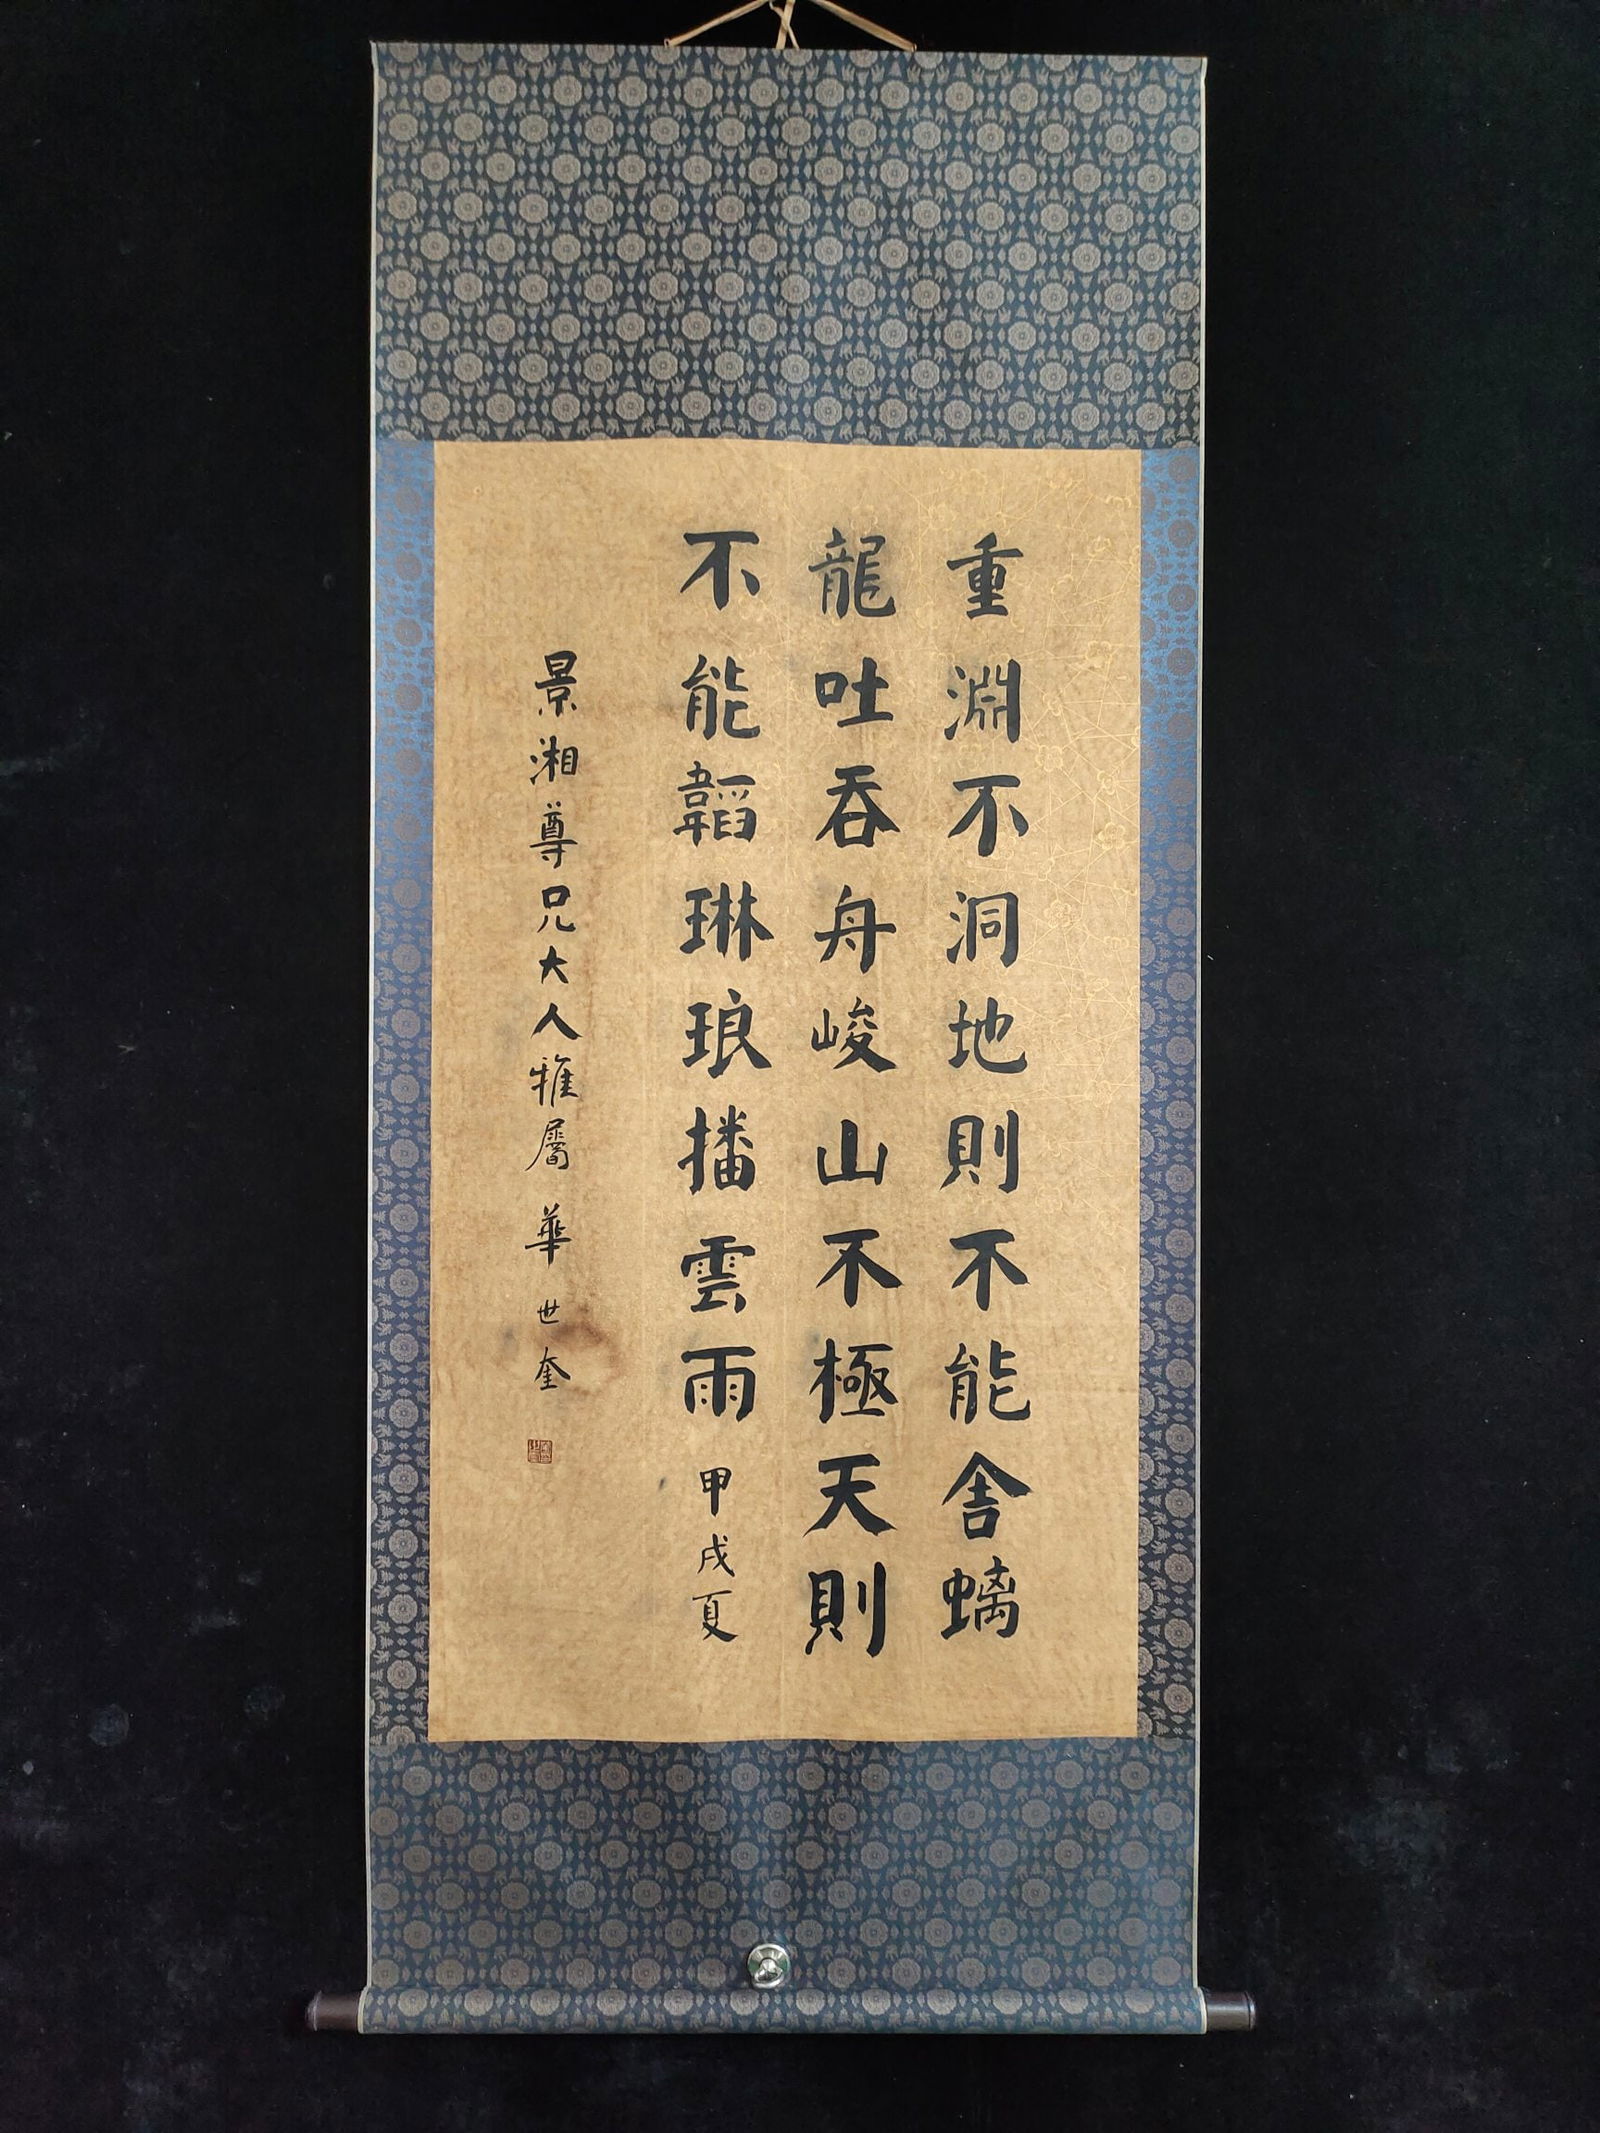 重淵不洞地則不能舍螭
龍吐吞舟峻山不極天則
不能韜琳琅播雲雨 甲戌夏
景湘尊兄大人雅屬 華世奎